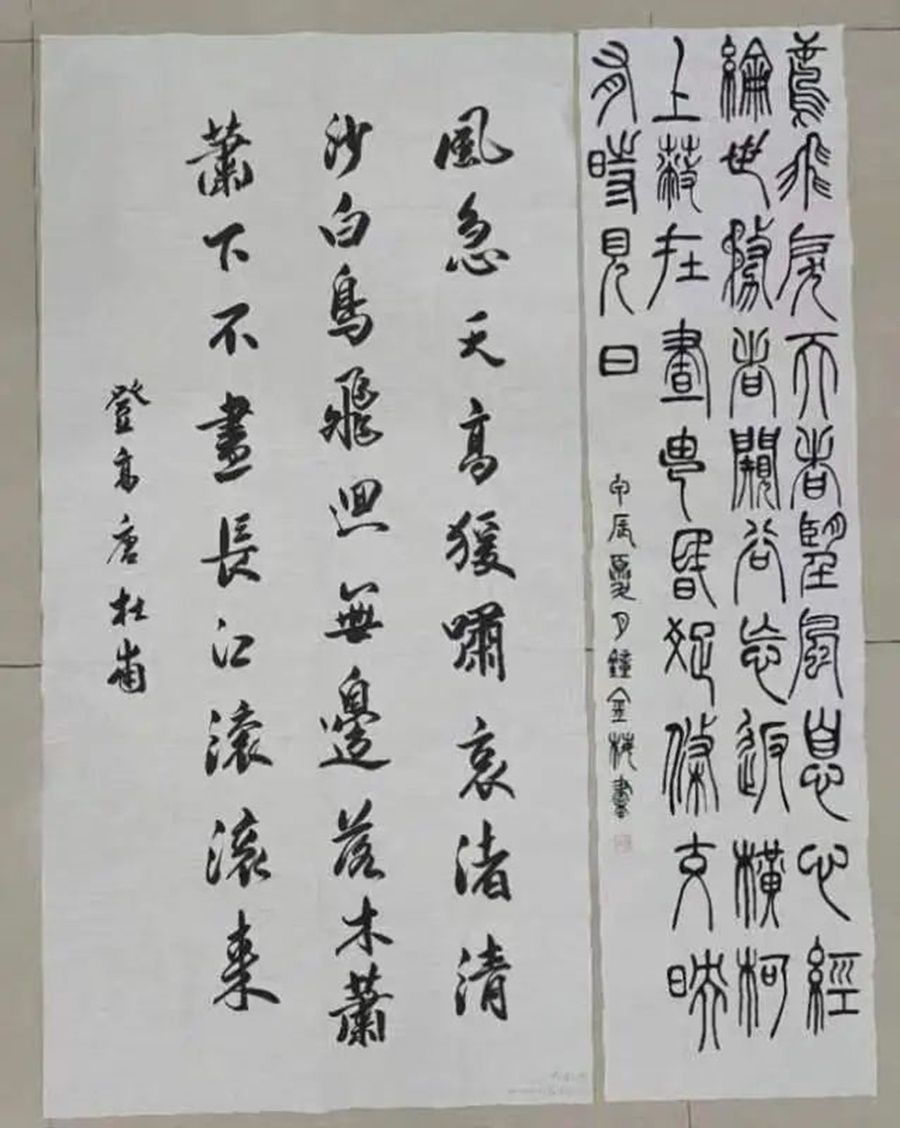 鳶飛戾天者望峰息心經
綸世務者闚谷忘返橫柯
上蔽在晝猶昏疏條交映
有時見日
甲辰夏月鐘金梅書
風急天高猨嘯哀渚清
沙白鳥飛迴無邊落木蕭
蕭下不盡長江滾滾來
登高唐杜甫